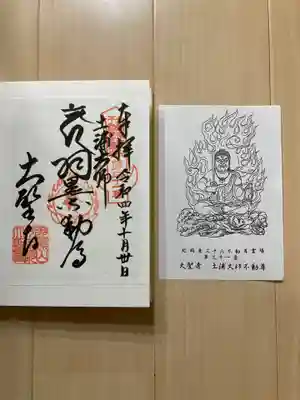 奉拝 令和四年十月
土浦大師
動尊
大聖寺
北関東三十六不動尊霊場
第三十一番
大聖寺 土浦大師不動尊